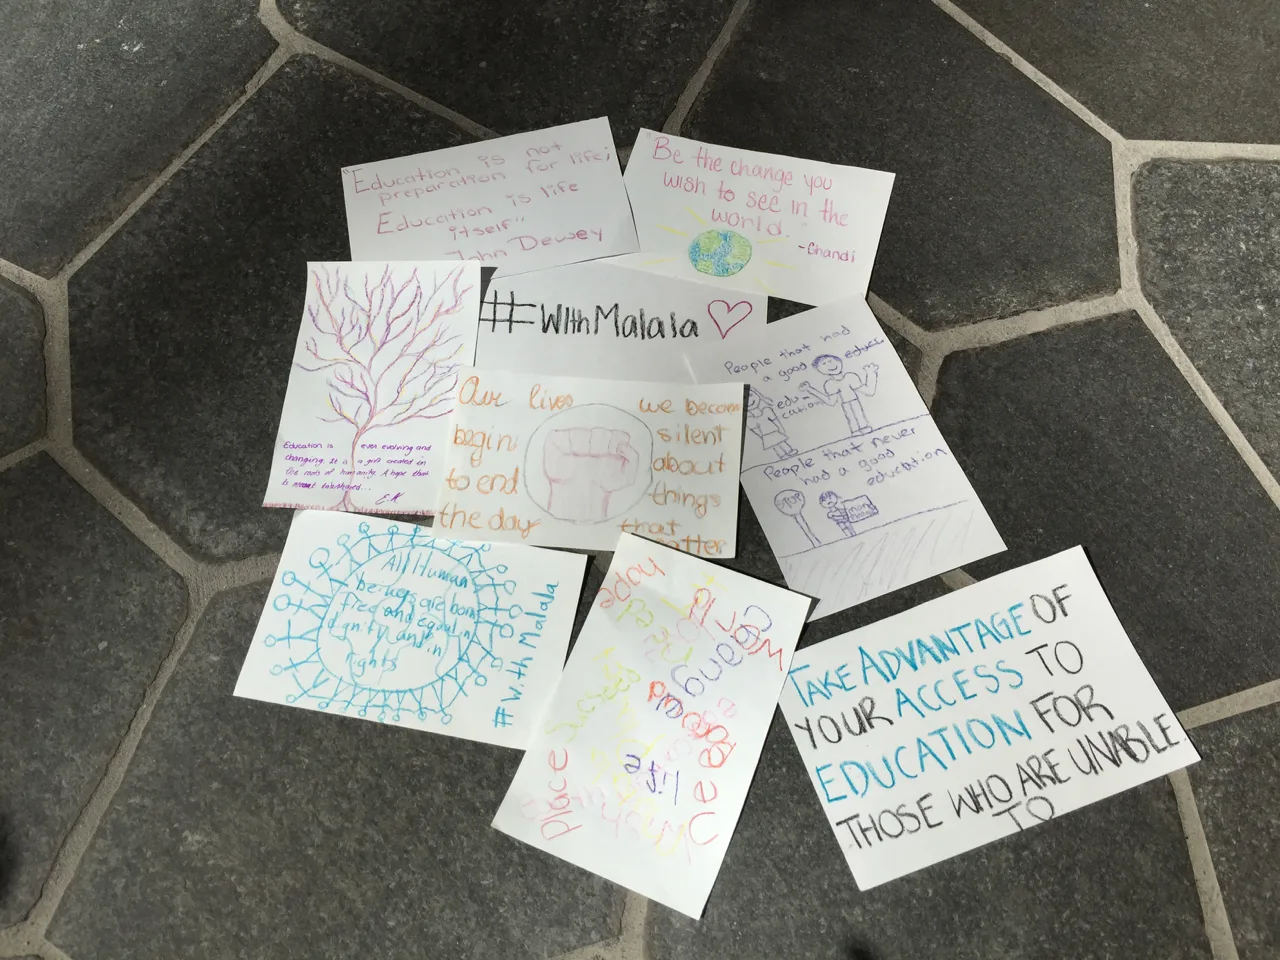 "Education is not
preparation for life;
Education is life
itself"
John Dewey
"Be the change you
wish to see in the
world."
-Ghandi
#WithMalala
Education is ever evolving and
changing. It is a gift created in
the roots of humanity. A hope that
is
E.K
Our lives
begin
to end
the day
we become
silent
about
things
that
matter
People that had
a good educ
edu-
cation
People that never
had a good
education
STOP
All Human
beings are born
free and equal in
dignity and in
rights
#withMalala
hope
World
Change
success
place
life
TAKE ADVANTAGE OF
YOUR ACCESS TO
EDUCATION FOR
THOSE WHO ARE UNABLE
TO